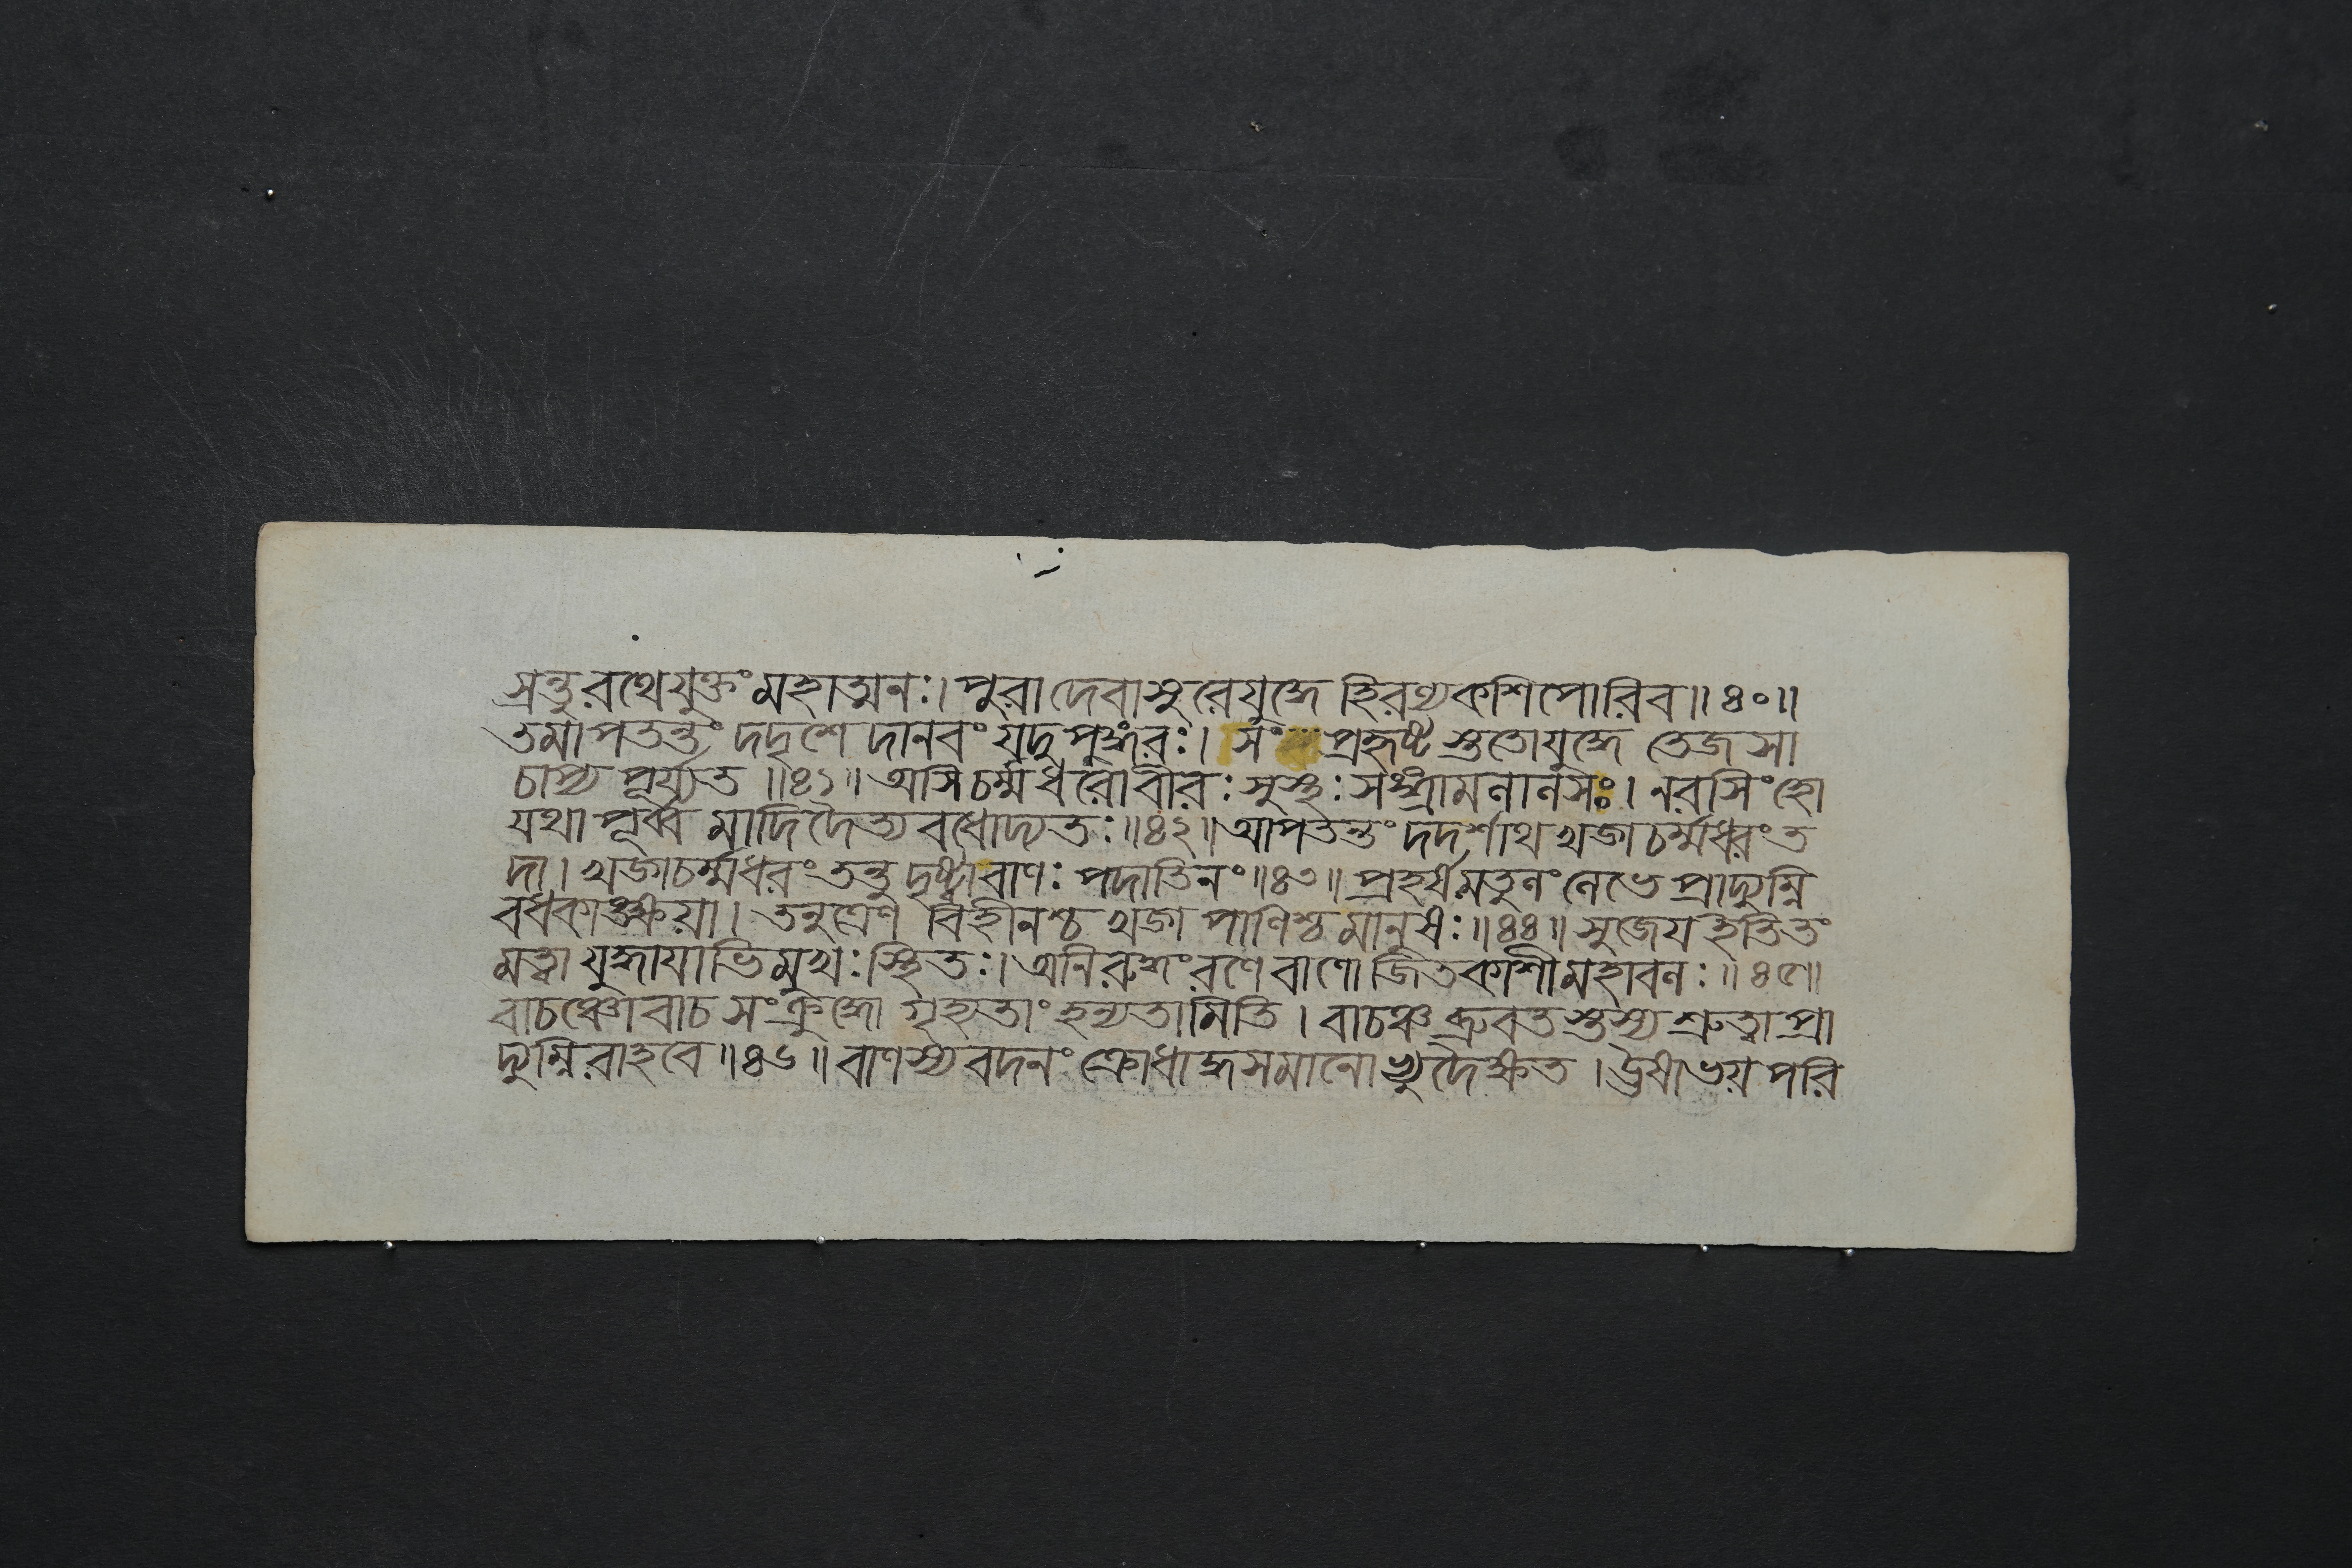 স্রন্তু রথে যুক্তং মহাত্মনঃ। পুরা দেবাসুরে যুদ্ধে হিরণ্যকশিপোরিব॥ ৪০॥
তমাপতন্তং দদৃশে দানবং যদুপুঙ্গবঃ। সং প্রহৃষ্টস্ততো যুদ্ধে তেজসা
চাপ্য পূর্য্যত ॥৪১॥ অসিচর্ম্মধরো বীরঃ সুস্থঃ সঙ্গ্রামলালসঃ। নরসিংহো
যথা পূর্ব্ব মাদিদৈত্যবধোদ্যতঃ॥৪২॥ আপতন্তং দদর্শাথ খড়্গচর্ম্মধরং ত
দা। খড়্গচর্ম্মধরং তন্তু দৃষ্ট্বা বাণঃ পদাতিনং॥৪৩॥ প্রহর্ষমতুলং লেভে প্রাদ্যুম্নি
বধকাঙ্ক্ষয়া। তনুত্রেণ বিহীনশ্চ খড়্গ পাণিশ্চ মানুষঃ॥৪৪॥ সুজেয় ইতি তং
মত্বা যুদ্ধায়াভিমুখঃ স্থিতঃ। অনিরুদ্ধং রণে বাণো জিতকাশী মহাবলঃ॥ ৪৫॥
বাচঞ্চোবাচ সংক্রুদ্ধো গৃহ্যতাং হন্যতামিতি। বাচঞ্চ ব্রুবতস্তস্য শ্রুত্বা প্রা
দ্যুম্নিরাহবে॥৪৬॥ বাণস্য বদনং ক্রোধাদ্ধসমানো ভ্যুদৈক্ষত। ঊষা ভয় পরি